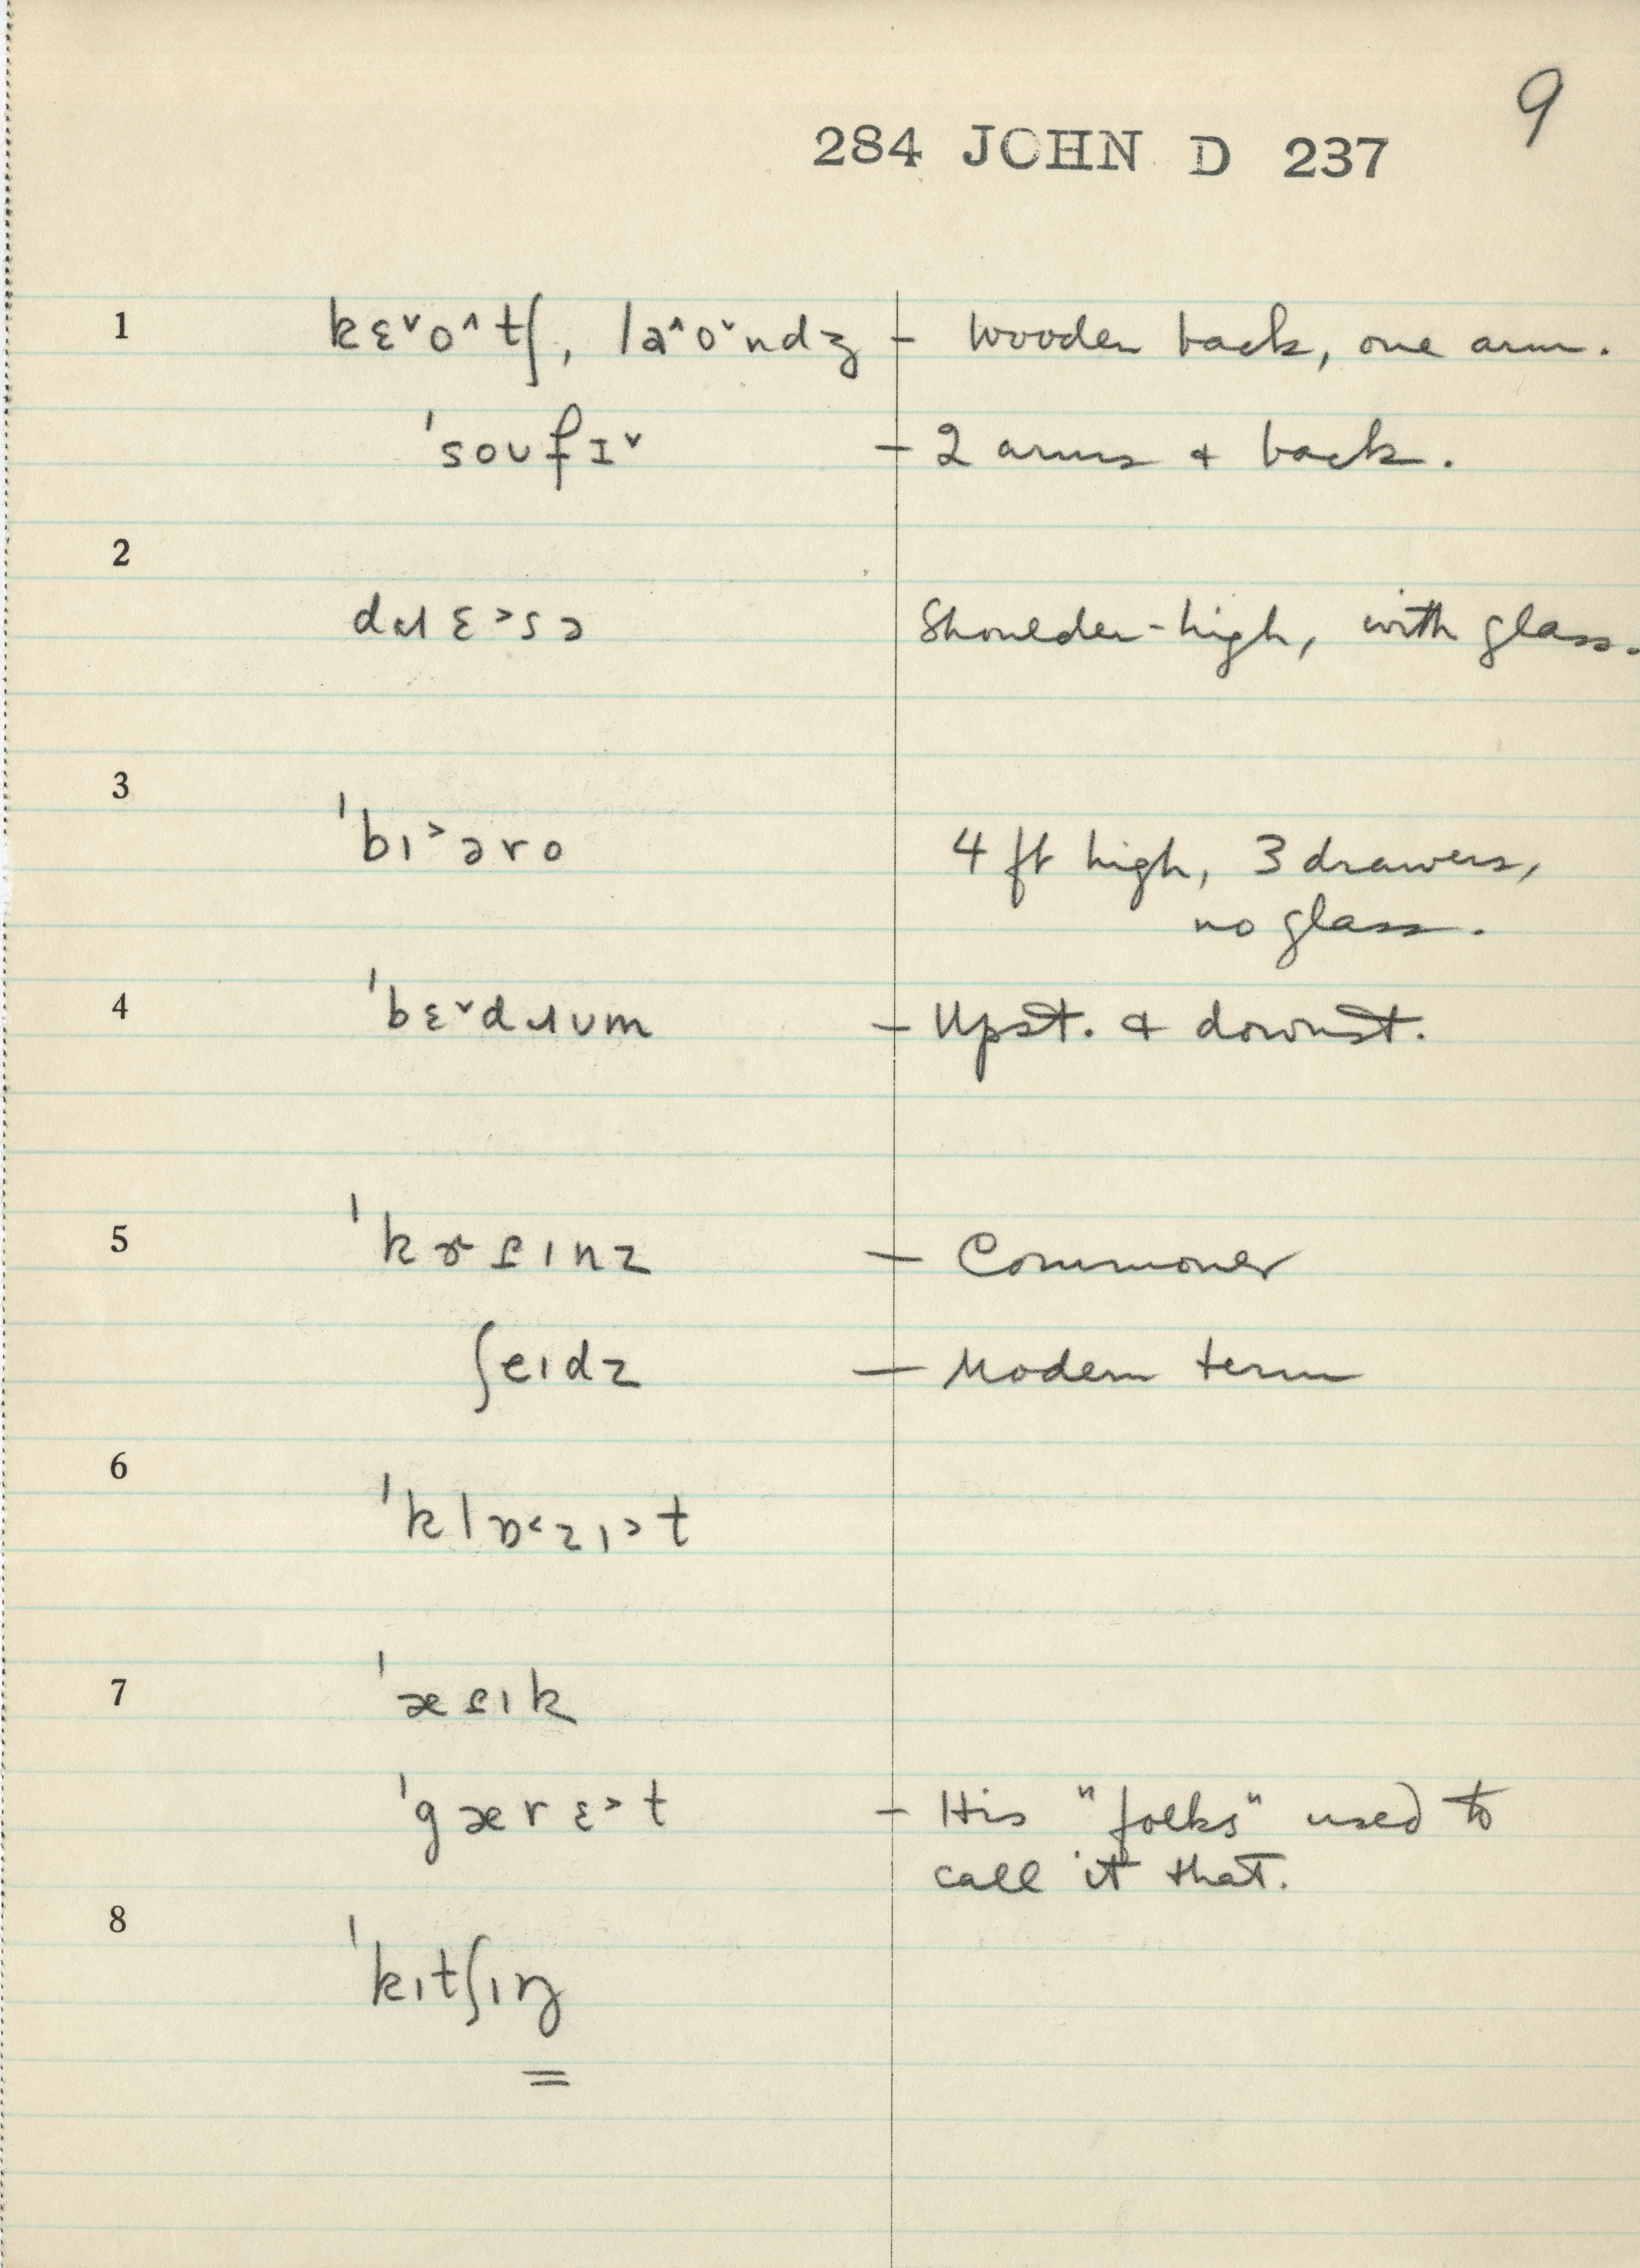 9
284 JOHN D 237
1 kɛ˅o˄tʃ, la˄o˅ndʒ – Wooden back, one arm.
ˈsoʊfɪ˅ – 2 arms & back.
2
dɹɛ˃sɚ Shoulder-high, with glass.
3
ˈbɪ˃əro 4 ft high, 3 drawers,
no glass.
4 ˈbɛ˅dɹʊm – Upst. & downst.
5 ˈkɝʈɪnz – Commoner
ʃeɪdz – Modern term
6
ˈklɒ˂zɪ˃t
7 ˈæʈɪk
ˈgærɛ˃t – His "folks" used to
call it that.
8
ˈkɪtʃɪŋ
=